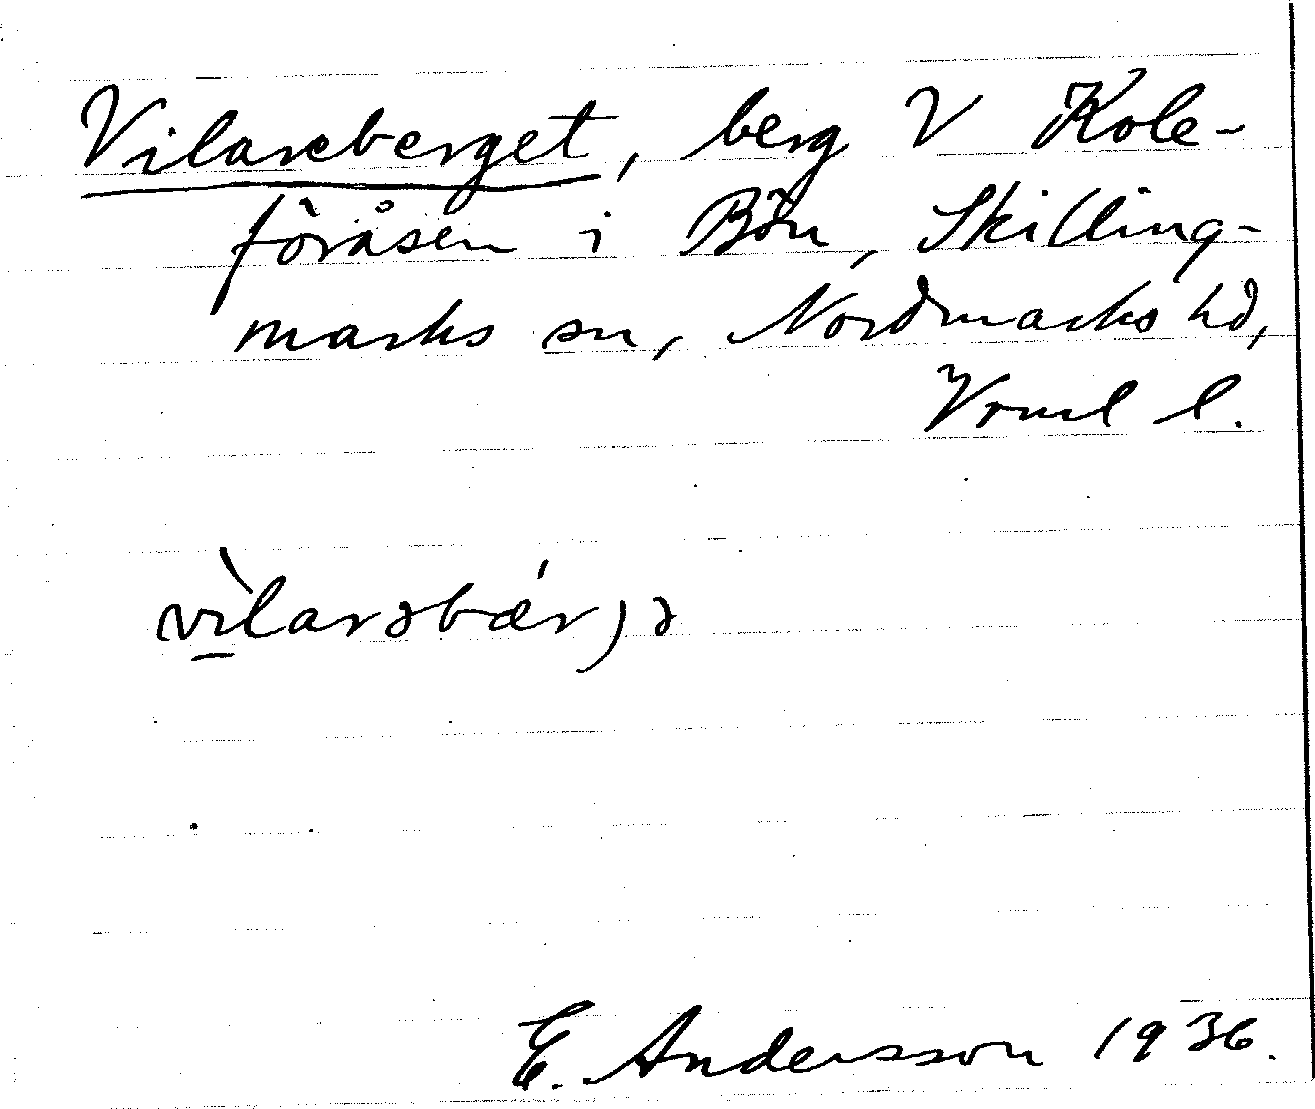 Vilareberget, berg V Kole-
föråsen i Bön, Skilling-
marks sn, Nordmarks hd,
Vrml l.
vìlarəbǽrjə
E. Andersson 1936.